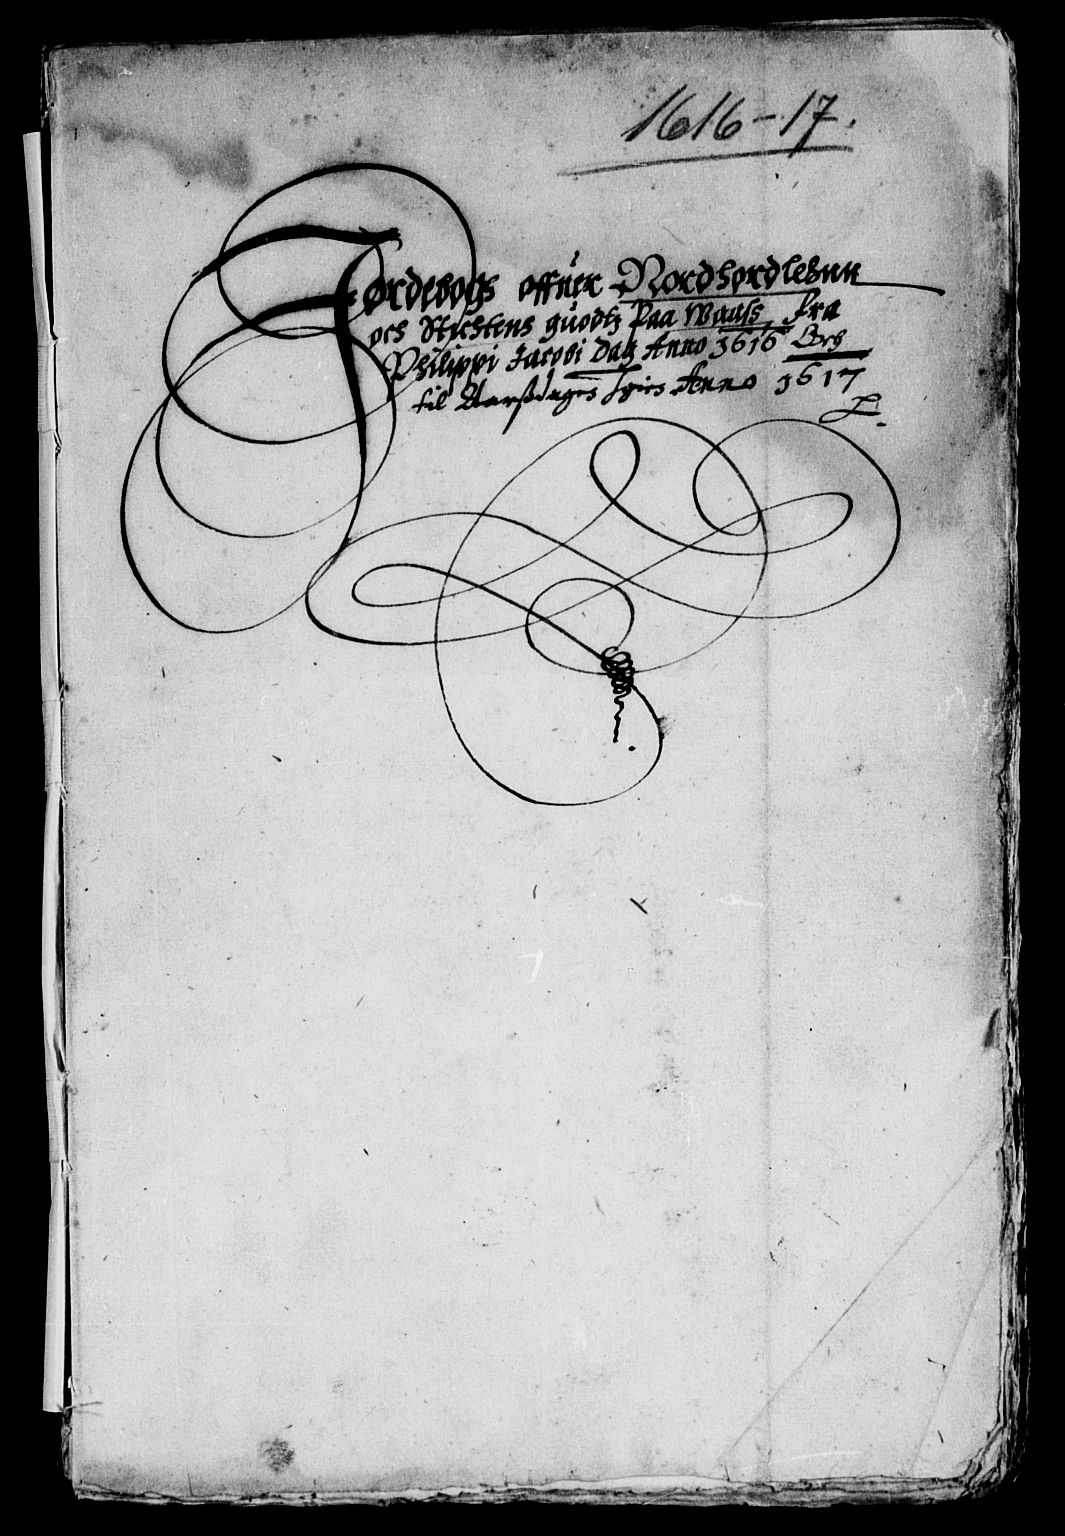 1616-17.
Jørdebogs offuer Nordhordlehnn
och Stichtens guodtz Paa Waass, fra
Philippi Jacobi dag Anno 1616 Och
til Aarsdagen Igien Anno 1617